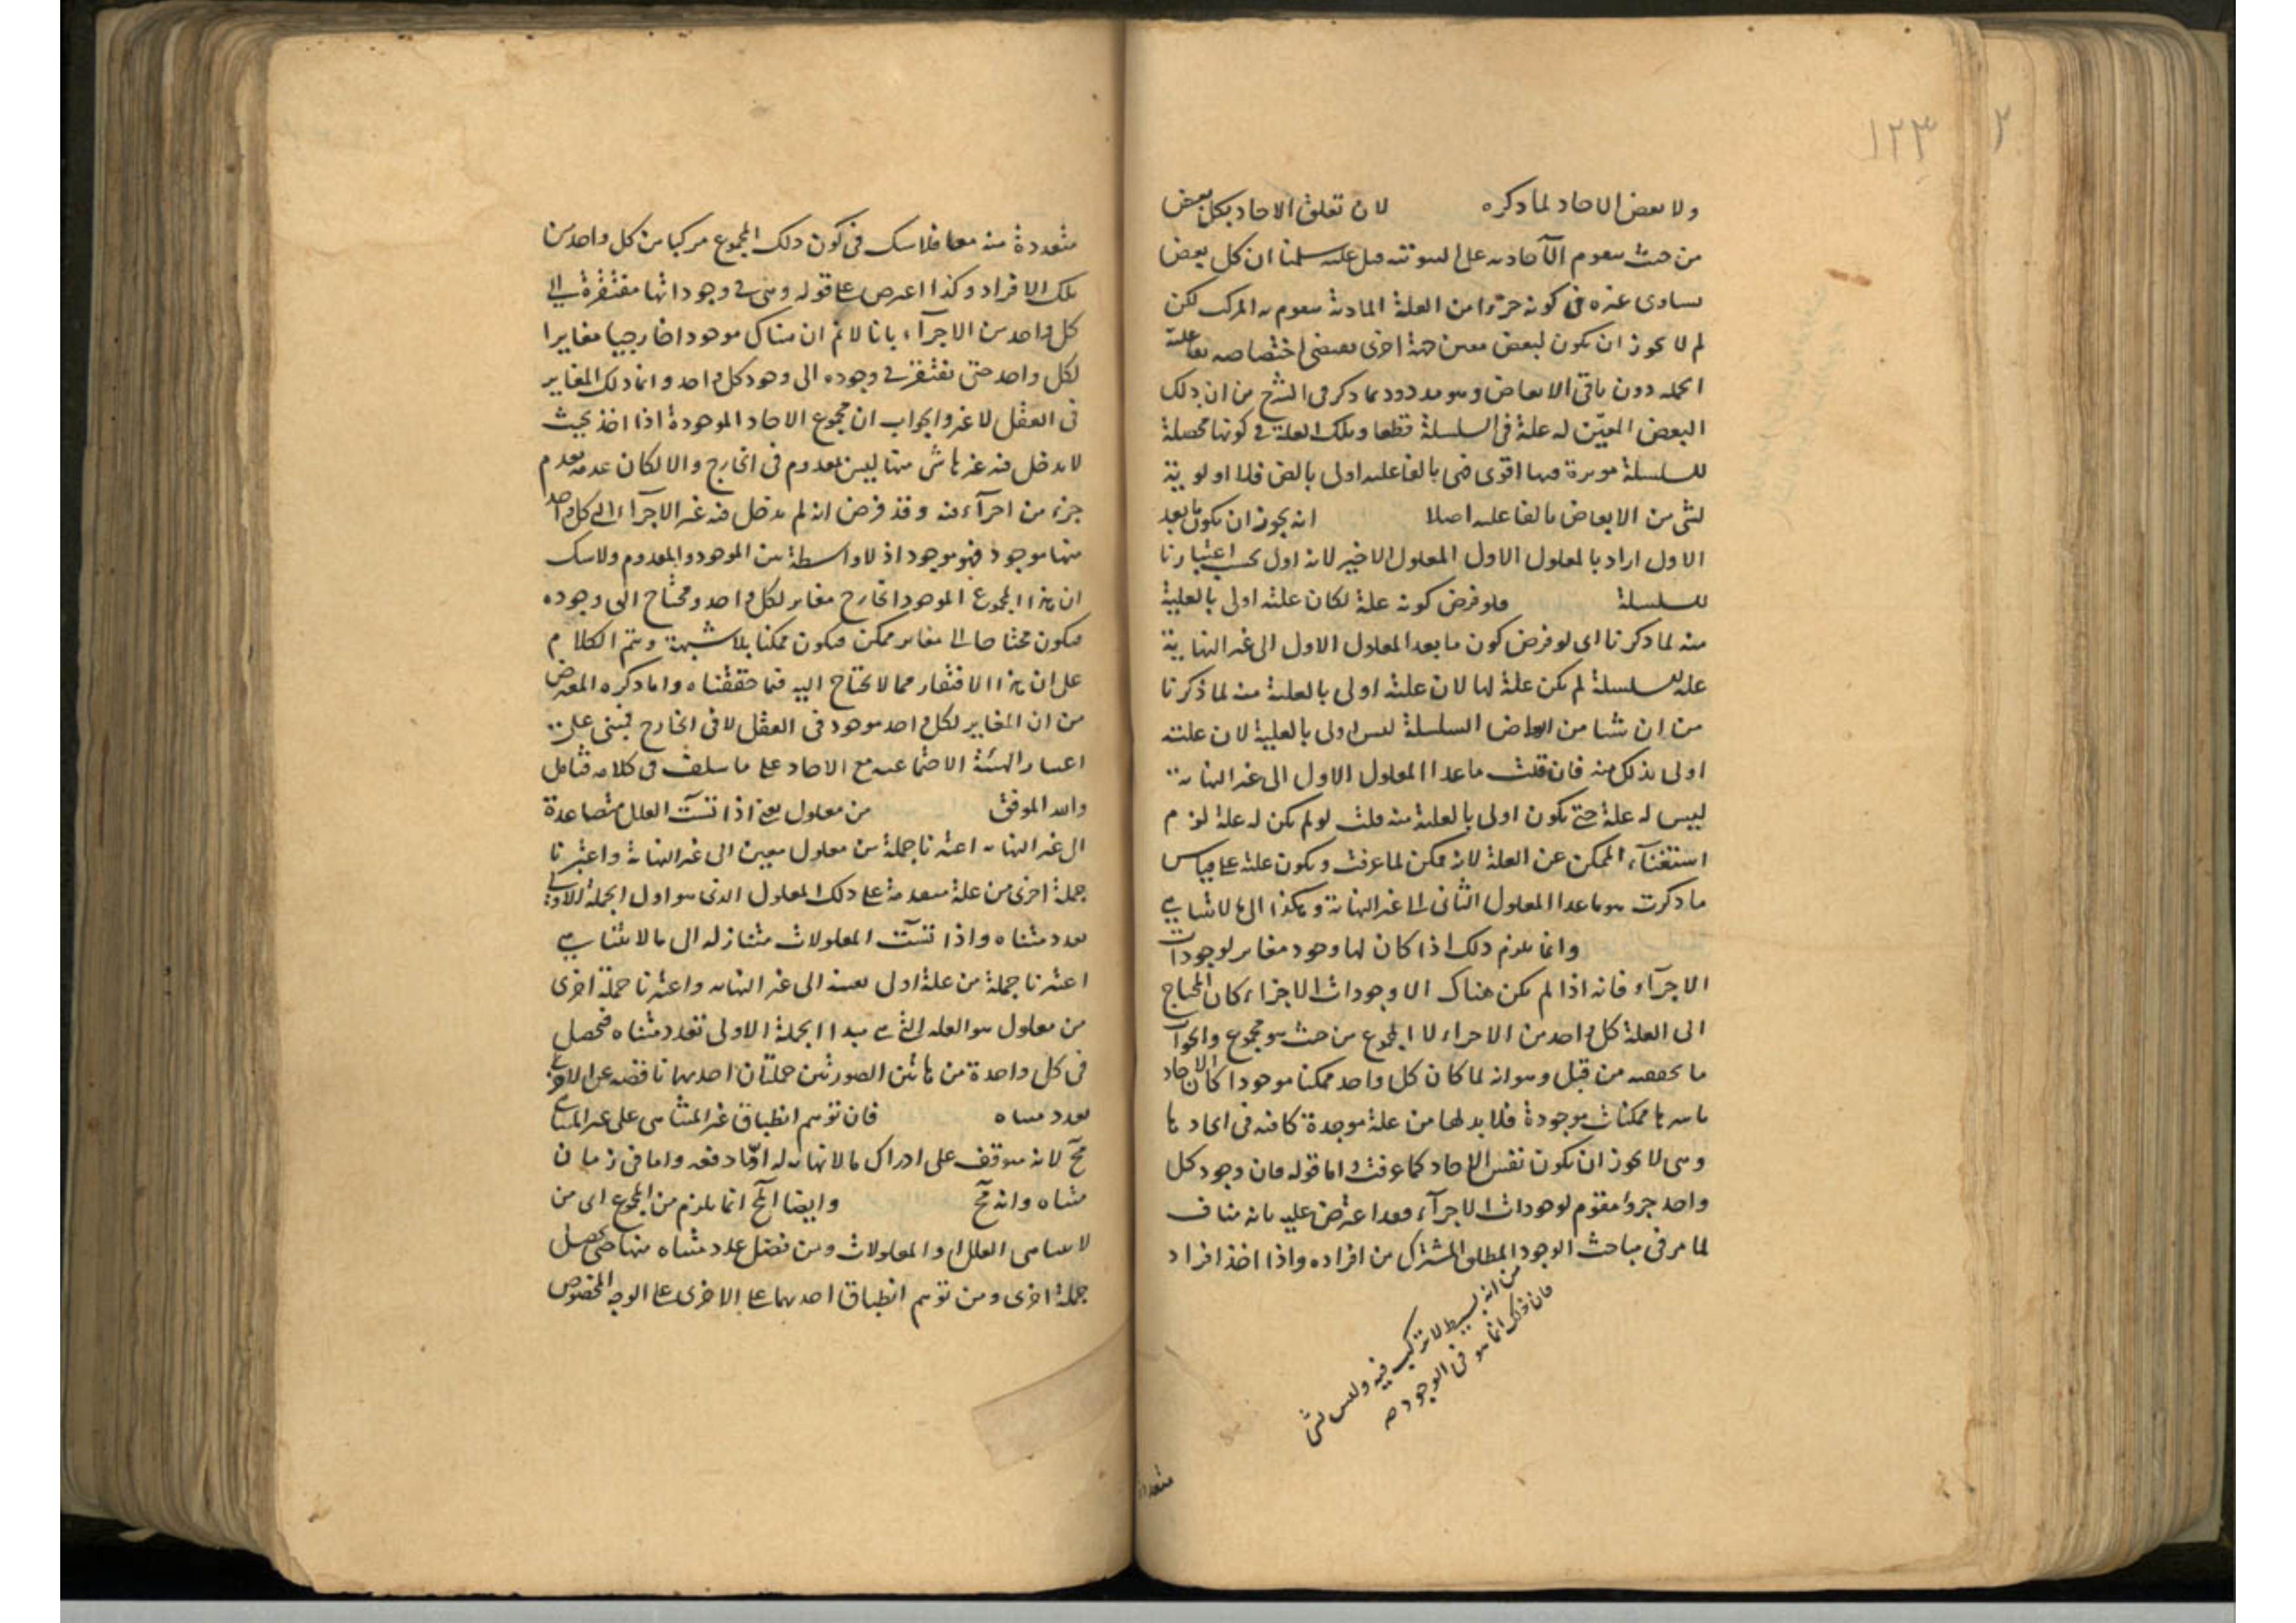 ١٢٣
٢
ولا بعض الاحاد لما ذكره لان تعلق الاحاد بكل بعض
من حيث يتقوم الآحاد به على السوية قيل عليه سلمنا ان كل بعض
يساوى غيره فى كونه جزءا من العلة المادية يتقوم به المركب لكن
لم لا يجوز ان يكون لبعض معين جهة اخرى يقتضى اختصاصه بفاعلية
الجملة دون باقى الابعاض وهو مردود بما ذكر فى الشرح من ان ذلك
البعض المعيّن له علة فى السلسلة قطعا وتلك العلة فى كونها محصلة
للسلسلة موثرة فيها اقوى فهى بالفاعلية اولى بالض فلا اولوية
لشى من الابعاض بالفاعلية اصلا انه يجوز ان يكون ما بعد
الاول اراد بالمعلول الاول المعلول الاخير لانه اول بحسب اعتبارنا
للسلسلة فلو فرض كونه علة لكان علته اولى بالعلية
منه لما ذكرنا اى لو فرض كون ما بعد المعلول الاول الى غير النهاية
علة للسلسلة لم يكن علة لها لان علته اولى بالعلية منه لما ذكرنا
من ان شيا من ابعاض السلسلة ليس اولى بالعلية لان علته
اولى بذلك منه فان قلت ما عدا المعلول الاول الى غير النهاية
ليس له علة حتى يكون اولى بالعلية منه قلت لو لم يكن له علة لزم
استغنآء الممكن عن العلة لانه ممكن لما عرفت ويكون علته على قياس
ما ذكرت هو ما عدا المعلول الثانى الى غير النهاية وهكذا الى ما لا يتناهى
وانما يلزم ذلك اذا كان لها وجود مغاير لوجودات
الاجزآء فانه اذا لم يكن هناك الا وجودات الاجزاء كان المحتاج
الى العلة كل واحد من الاجزاء لا المجموع من حيث هو مجموع والجواب
ما تحققته من قبل وهو انه لما كان كل واحد ممكنا موجودا كان الاحاد
باسرها ممكنات موجودة فلا بد لها من علة موجدة كافية فى ايجادها
وهى لا يجوز ان يكون نفس الاحاد كما عرفت واما قوله فان وجود كل
واحد جزوا مقوم لوجودات الاجزآء فقد اعترض عليه بانه مناف
لما مر فى مباحث الوجود المطلق المشترك من افراده واذا اخذ افراد
من انه بسيط لا تركيب فيه وليس بشى
فان ذلك انما هو فى الوجود صح
متعددة
متعددة منه معا فلا شك فى كون ذلك المجموع مركبا من كل واحد من
تلك الافراد وكذا اعترض على قوله وهى فى وجوداتها مفتقرة الى
كل واحد من الاجزآء بانا لا نم ان هناك موجودا خارجيا مغايرا
لكل واحد حتى يفتقر فى وجوده الى وجود كل واحد وانما ذلك المغاير
فى العقل لا غير والجواب ان مجموع الاحاد الموجودة اذا اخذ بحيث
لا يدخل فيه غيرها شى منها ليس بمعدوم فى الخارج والا لكان عدمه بعدم
جزء من اجزآءه وقد فرض انه لم يدخل فيه غير الاجزآء التى كل واحد
منها موجود فهو موجود اذ لا واسطة بين الموجود والمعدوم ولا شك
ان هذا المجموع الموجود الخارج مغاير لكل واحد ومحتاج الى وجوده
فيكون محتاجا الى مغاير ممكن فيكون ممكنا بلا شبهة ويتم الكلام
على ان هذا الافتقار مما لا يحتاج اليه فيما حققناه واما ذكره المعترض
من ان المغاير لكل واحد موجود فى العقل لا فى الخارج فمبنى على
اعتبار الهيئة الاجتماعية مع الاحاد على ما سلف فى كلامه فتامل
والله الموفق من معلول يعنى اذا تسآت العلل متصاعدة
الى غير النهاية اعتبرنا جملة من معلول معين الى غير النهاية واعتبرنا
جملة اخرى من علة متقدمة على ذلك المعلول الذى هو اول الجملة الاولى
بعدد متناه واذا تسآت المعلولات متنازلة الى ما لا يتناهى
اعتبرنا جملة من علة اولى بعينه الى غير النهاية واعتبرنا جملة اخرى
من معلول هو العلة التى هى مبدا الجملة الاولى بعدد متناه فحصل
فى كل واحدة من هاتين الصورتين جملتان احديهما ناقصة عن الاخرى
بعدد متناه فان توهم انطباق غير المتناهى على غير المتناهى
مح لانه يتوقف على ادراك ما لا نهاية له امّا دفعة واما فى زمان
متناه وانه مح وايضا المح انما يلزم من المجموع اى من
لا تناهى العلل او المعلولات ومن فصل عدد متناه منها حتى يحصل
جملة اخرى ومن توهم انطباق احديهما على الاخرى على الوجه المخصوص